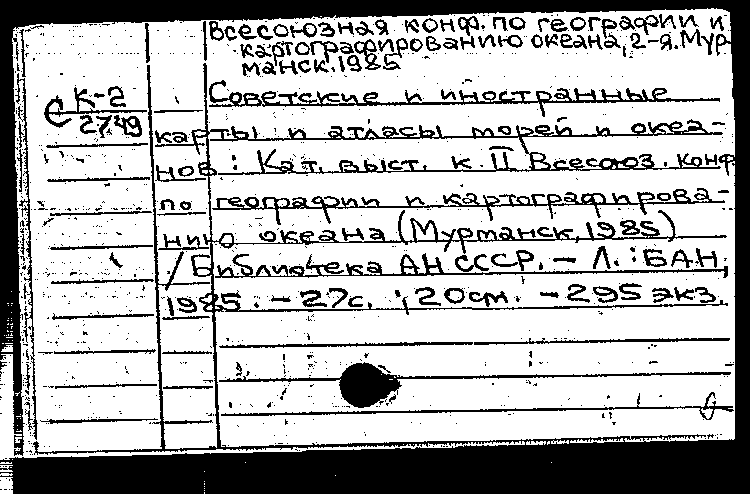 Всесоюзная конф. по географии и
картографированию океана, 2-я. Мур-
манск. 1985
С К-2
2749
Советские и иностранные
карты и атласы морей и океа-
нов : Кат. выст. к II Всесоюз. конф
по географии и картографирова-
нию океана (Мурманск, 1985)
/ Библиотека АН СССР. – Л. : БАН,
1985. – 27с. ; 20см. – 295 экз.